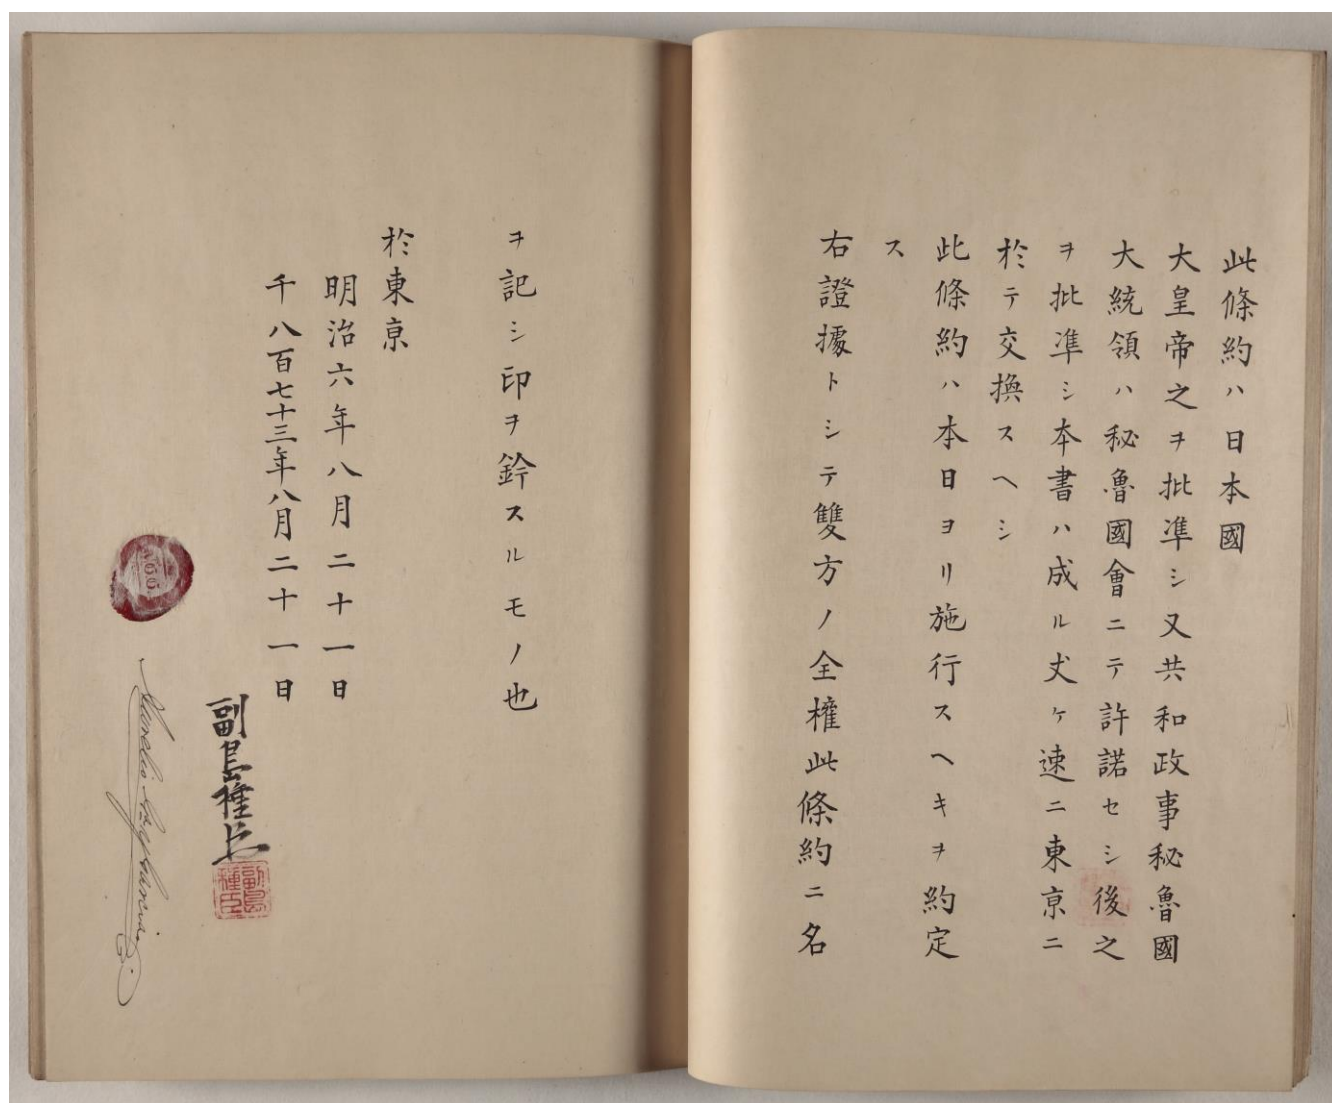 此條約ハ日本國
大皇帝之ヲ批準シ又共和政事秘魯國
大統領ハ秘魯國會ニテ許諾セシ後之
ヲ批準シ本書ハ成ル丈ケ速ニ東京ニ
於テ交換スヘシ
此條約ハ本日ヨリ施行スヘキヲ約定
ス
右證據トシテ雙方ノ全權此條約ニ名
ヲ記シ印ヲ鈐スルモノ也
於東京
明治六年八月二十一日
千八百七十三年八月二十一日
副島種臣
副島種臣
Aurelio Gcy Garcia